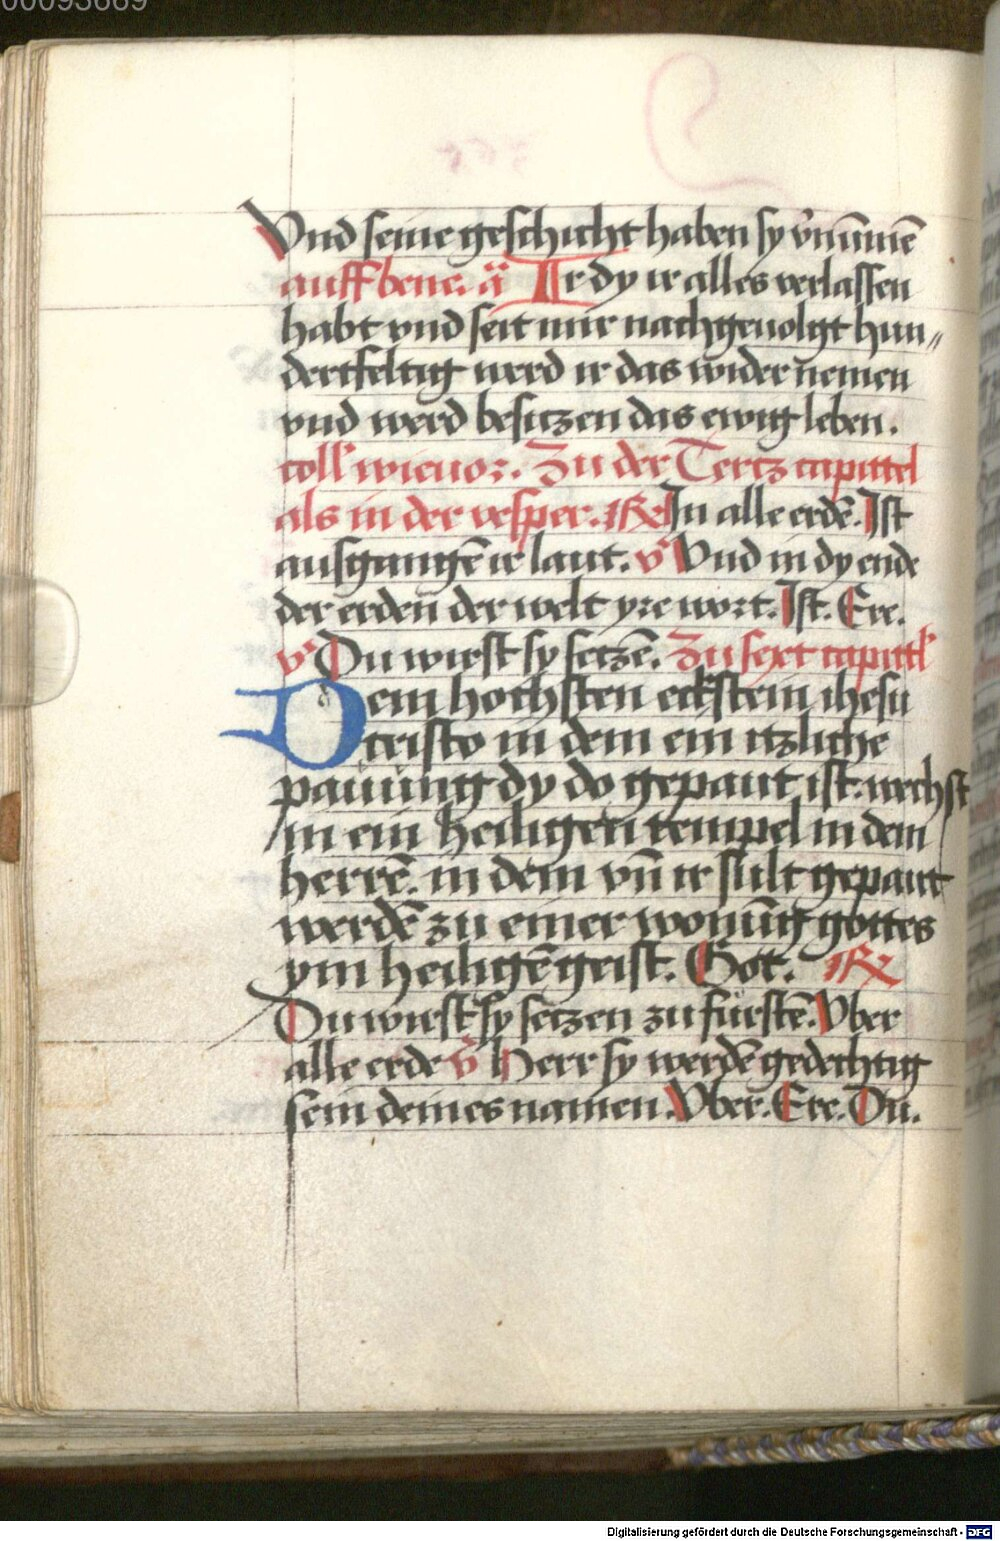 00093669
Vnd seine geschicht haben sy v̄nūmē
auff bene. ā Ir dy ir alles verlassen
habt vnd seit mir nachgeuolgt hun„
dertfeltig werd ir das wider nemen
vnd werd besitzen das ewig leben.
coll wieuor. Zu der Tertz capittel
als in der vesper. R In alle erdē. Ist
ausgangē ir laut. v Vnd in dy ende
der erden der welt yre wort. Ist. Ere.
v Du wirst sy setzē. Zu sext capittl
Dem hochsten eckstein ihesu
cristo in dem ein itzliche
pauung dy do gepaut ist. wechst
in ein heiligen tempel in dem
herrē. in dem vn̄ ir sult gepaut
werdē zu einer wonūg gottes
ym heiligē geist. Got. R
Du wirst sy setzen zu fürstē. Vber
alle erde v Herr sy werdē gedechtig
sein deines namen. Vber. Ere. Du.
Digitalisierung gefördert durch die Deutsche Forschungsgemeinschaft - DFG